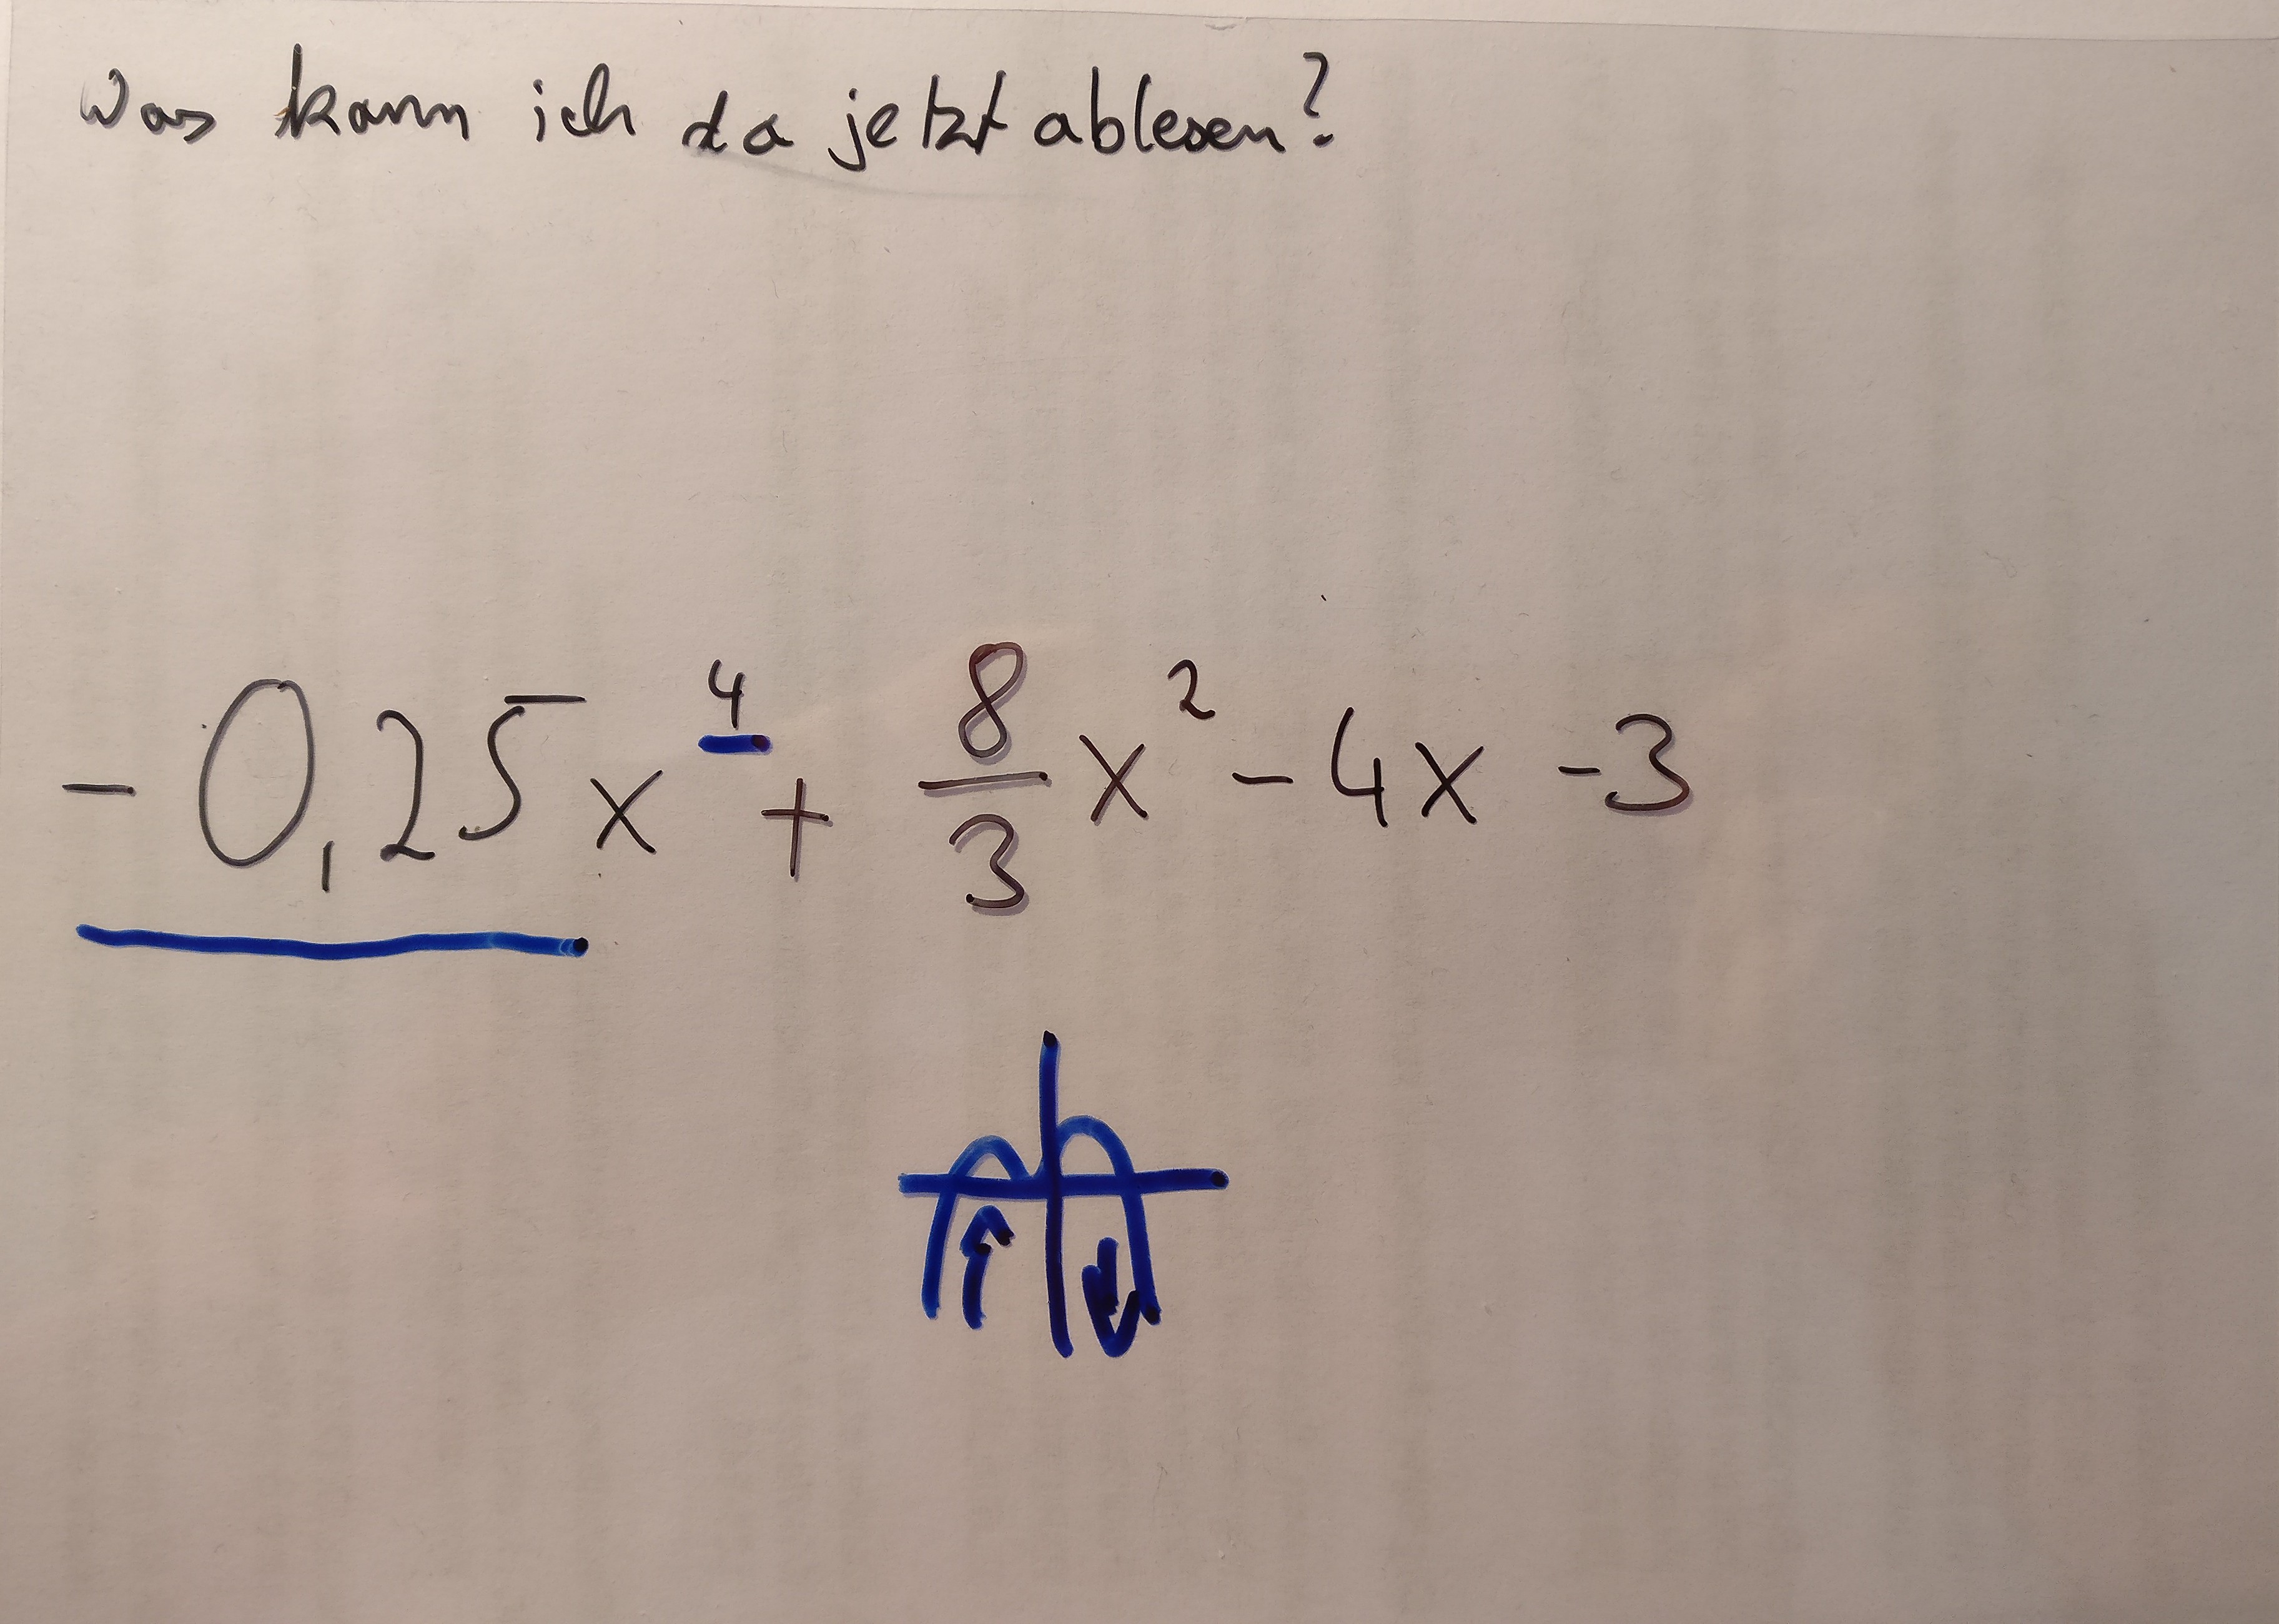 Was kann ich da jetzt ablesen?
- 0,25x⁴ + 8/3 x² - 4x - 3